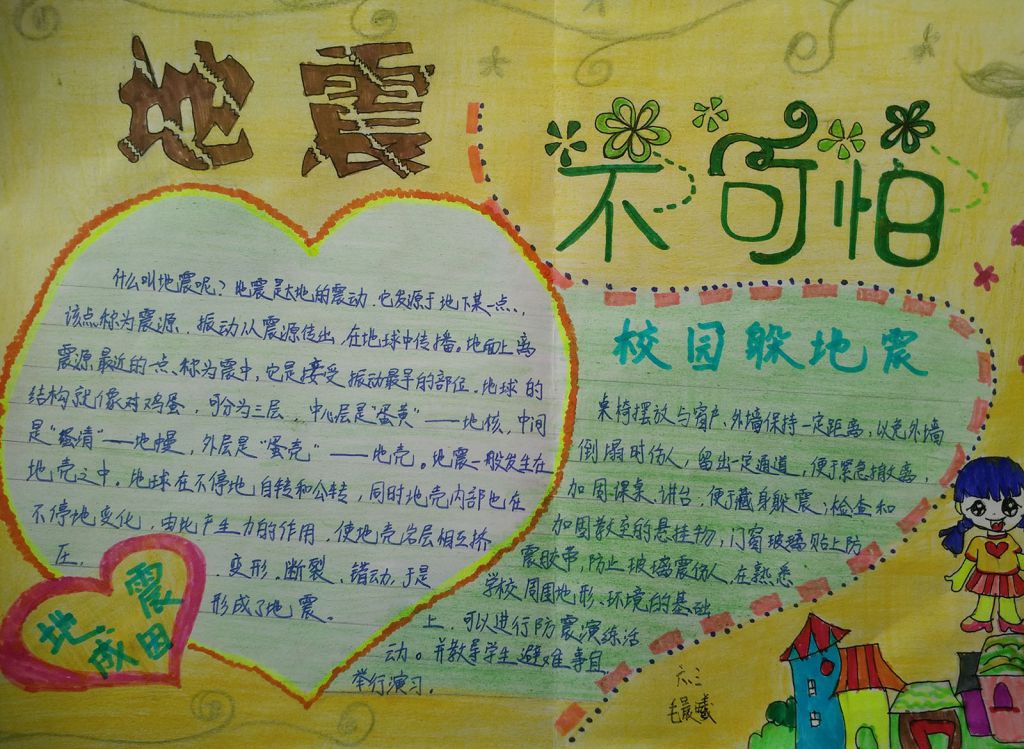 地震
不可怕
什么叫地震呢？地震是大地的震动，它发源于地下某一点，
该点称为震源，振动从震源传出，在地球中传播。地面上离
震源最近的一点称为震中，它是接受振动最早的部位。地球的
结构就像对鸡蛋，可分为三层，中心层是“蛋黄”——地核，中间
是“蛋清”——地幔，外层是“蛋壳”——地壳。地震一般发生在
地壳之中。地球在不停地自转和公转，同时地壳内部也在
不停地变化，由此产生力的作用，使地壳岩层相互挤
压，变形，断裂、错动，于是
形成了地震。
地震
成因
校园躲地震
桌椅摆放与窗户、外墙保持一定距离，以免外墙
倒塌时伤人，留出一定通道，便于紧急撤离，
加固课桌、讲台，便于藏身躲震；检查和
加固教室的悬挂物，门窗玻璃贴上防
震胶带，防止玻璃震伤人，在熟悉
学校周围地形、环境的基础
上，可以进行防震演练活
动。并教导学生避难事自
举行演习。
六.三
毛晨曦